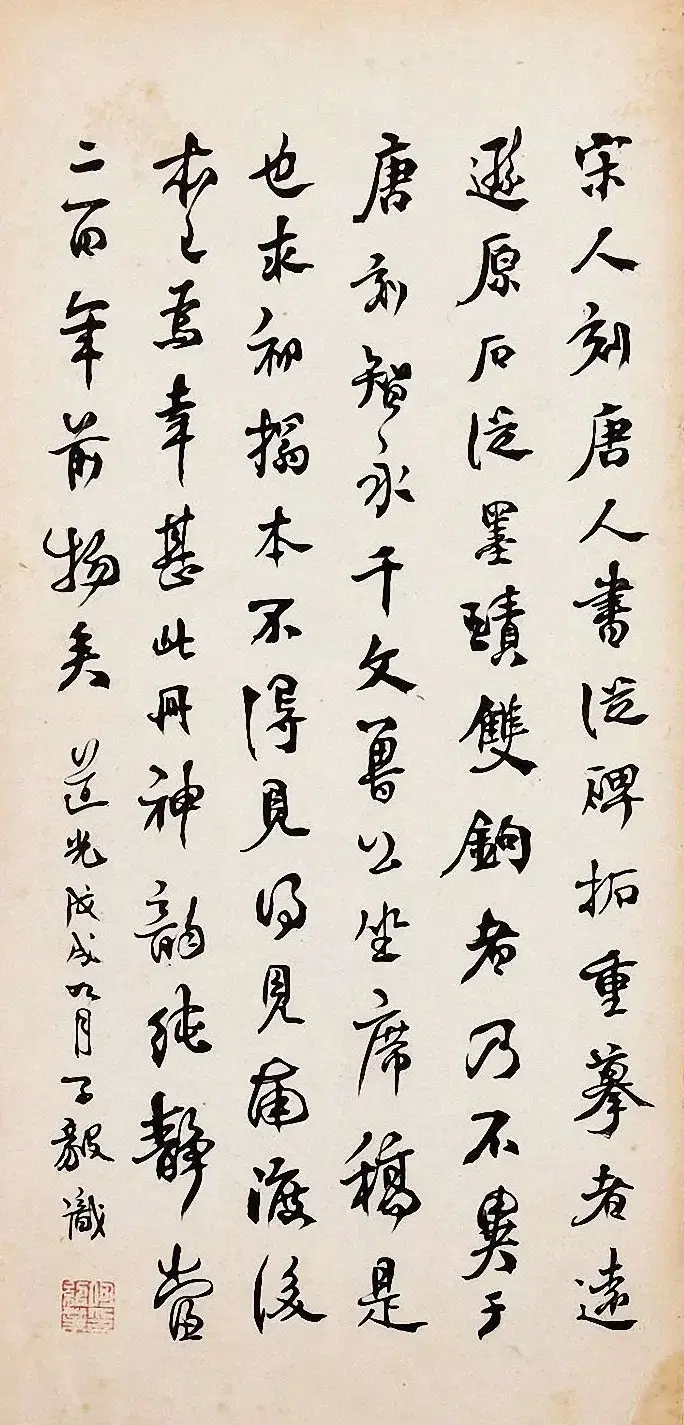 宋人刻唐人書從碑拓重摹者遠
遜原石從墨蹟雙鉤者乃不異于
唐刻智永千文魯公坐席稿是
也求初搨本不得見得見南渡後
本已為幸甚此冊神韻純靜當
二百年前物矣 道光戊戌九月子毅識